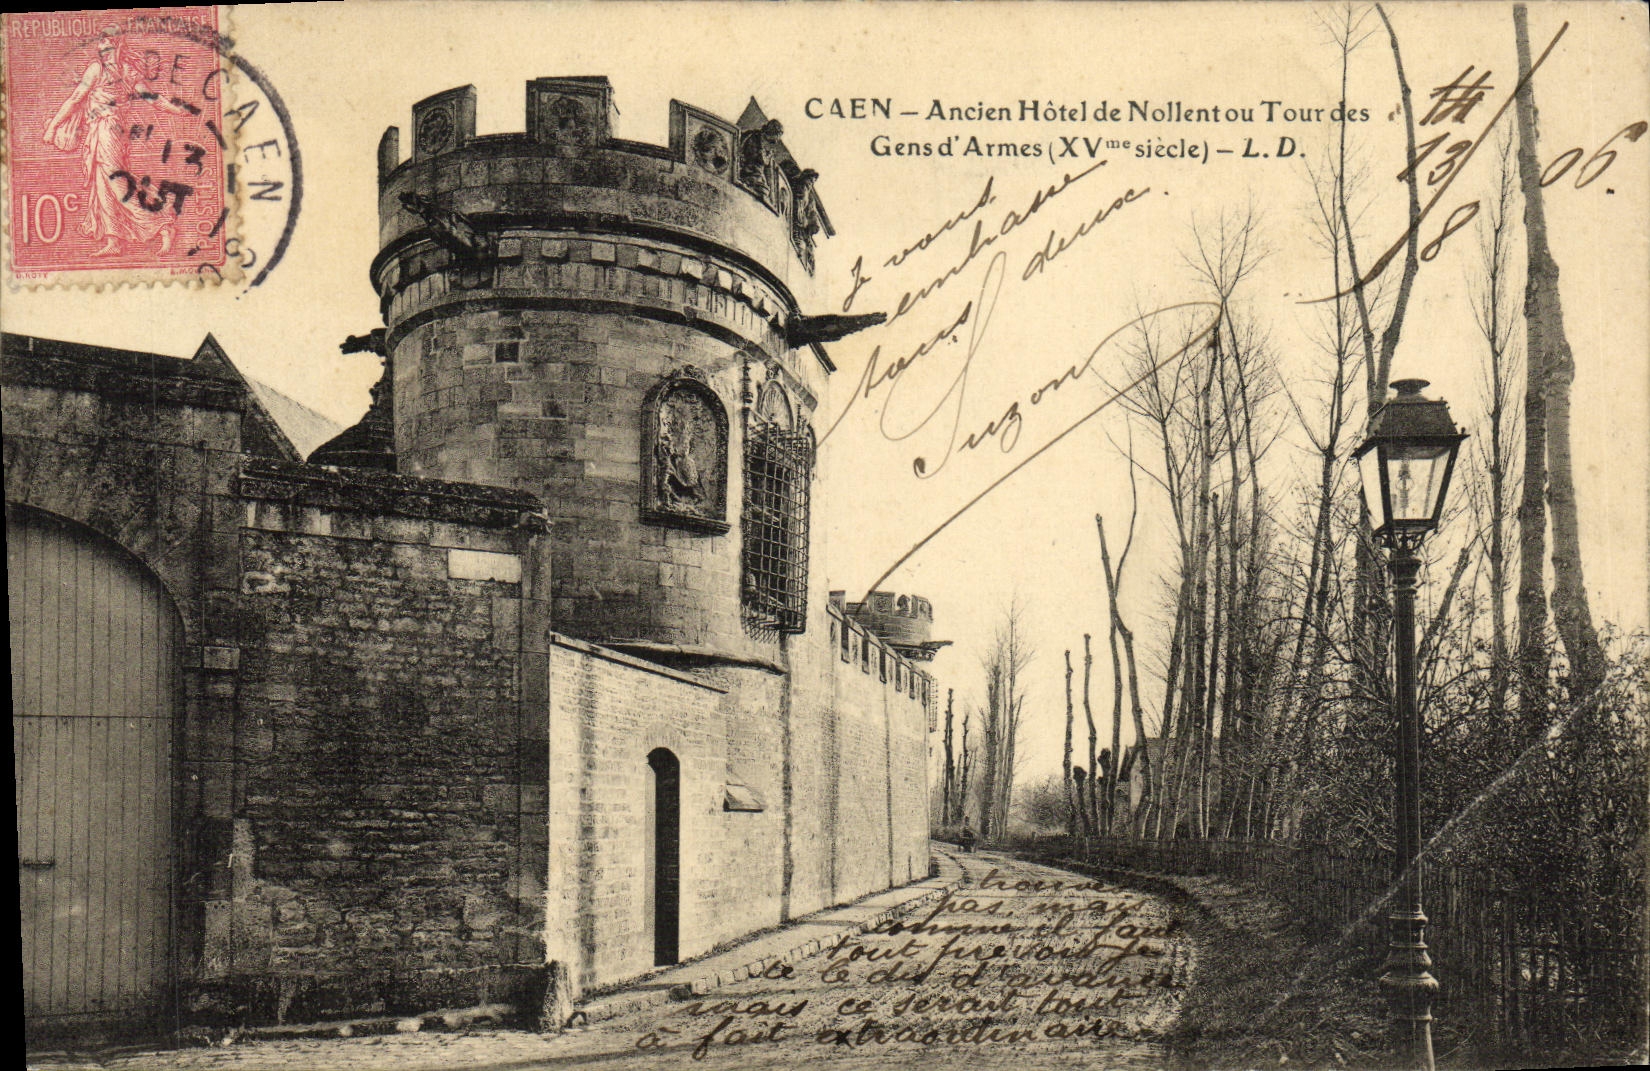 REPUBLIQUE FRANÇAISE
POSTES
10c
O. ROTY
DE CAEN
13
OUT
CAEN – Ancien Hôtel de Nollent ou Tour des
Gens d'Armes (XVme siècle) – L. D.
13/8 06.
Je vous
embrasse
tous deux.
Suzon
trouve
pas, mais
comme il faut
tout prévoir je
te le dis d'avance
mais ce serait tout
à fait extraordinaire